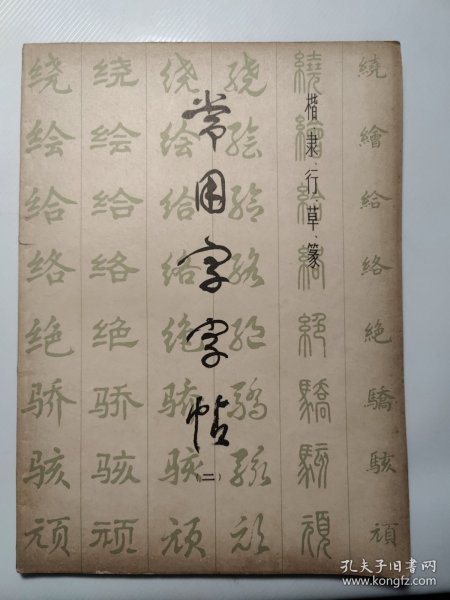 楷、隶、行、草、篆
常用字字帖
(二)
绕 绕 绕 绕 繞 繞
绘 绘 绘 绘 繪 繪
给 给 给 给 給 給
络 络 络 络 絡 絡
绝 绝 绝 绝 絕 絕
骄 骄 骄 骄 驕 驕
骇 骇 骇 骇 駭 駭
顽 顽 顽 顽 頑 頑
孔夫子旧书网
www.kongfz.com